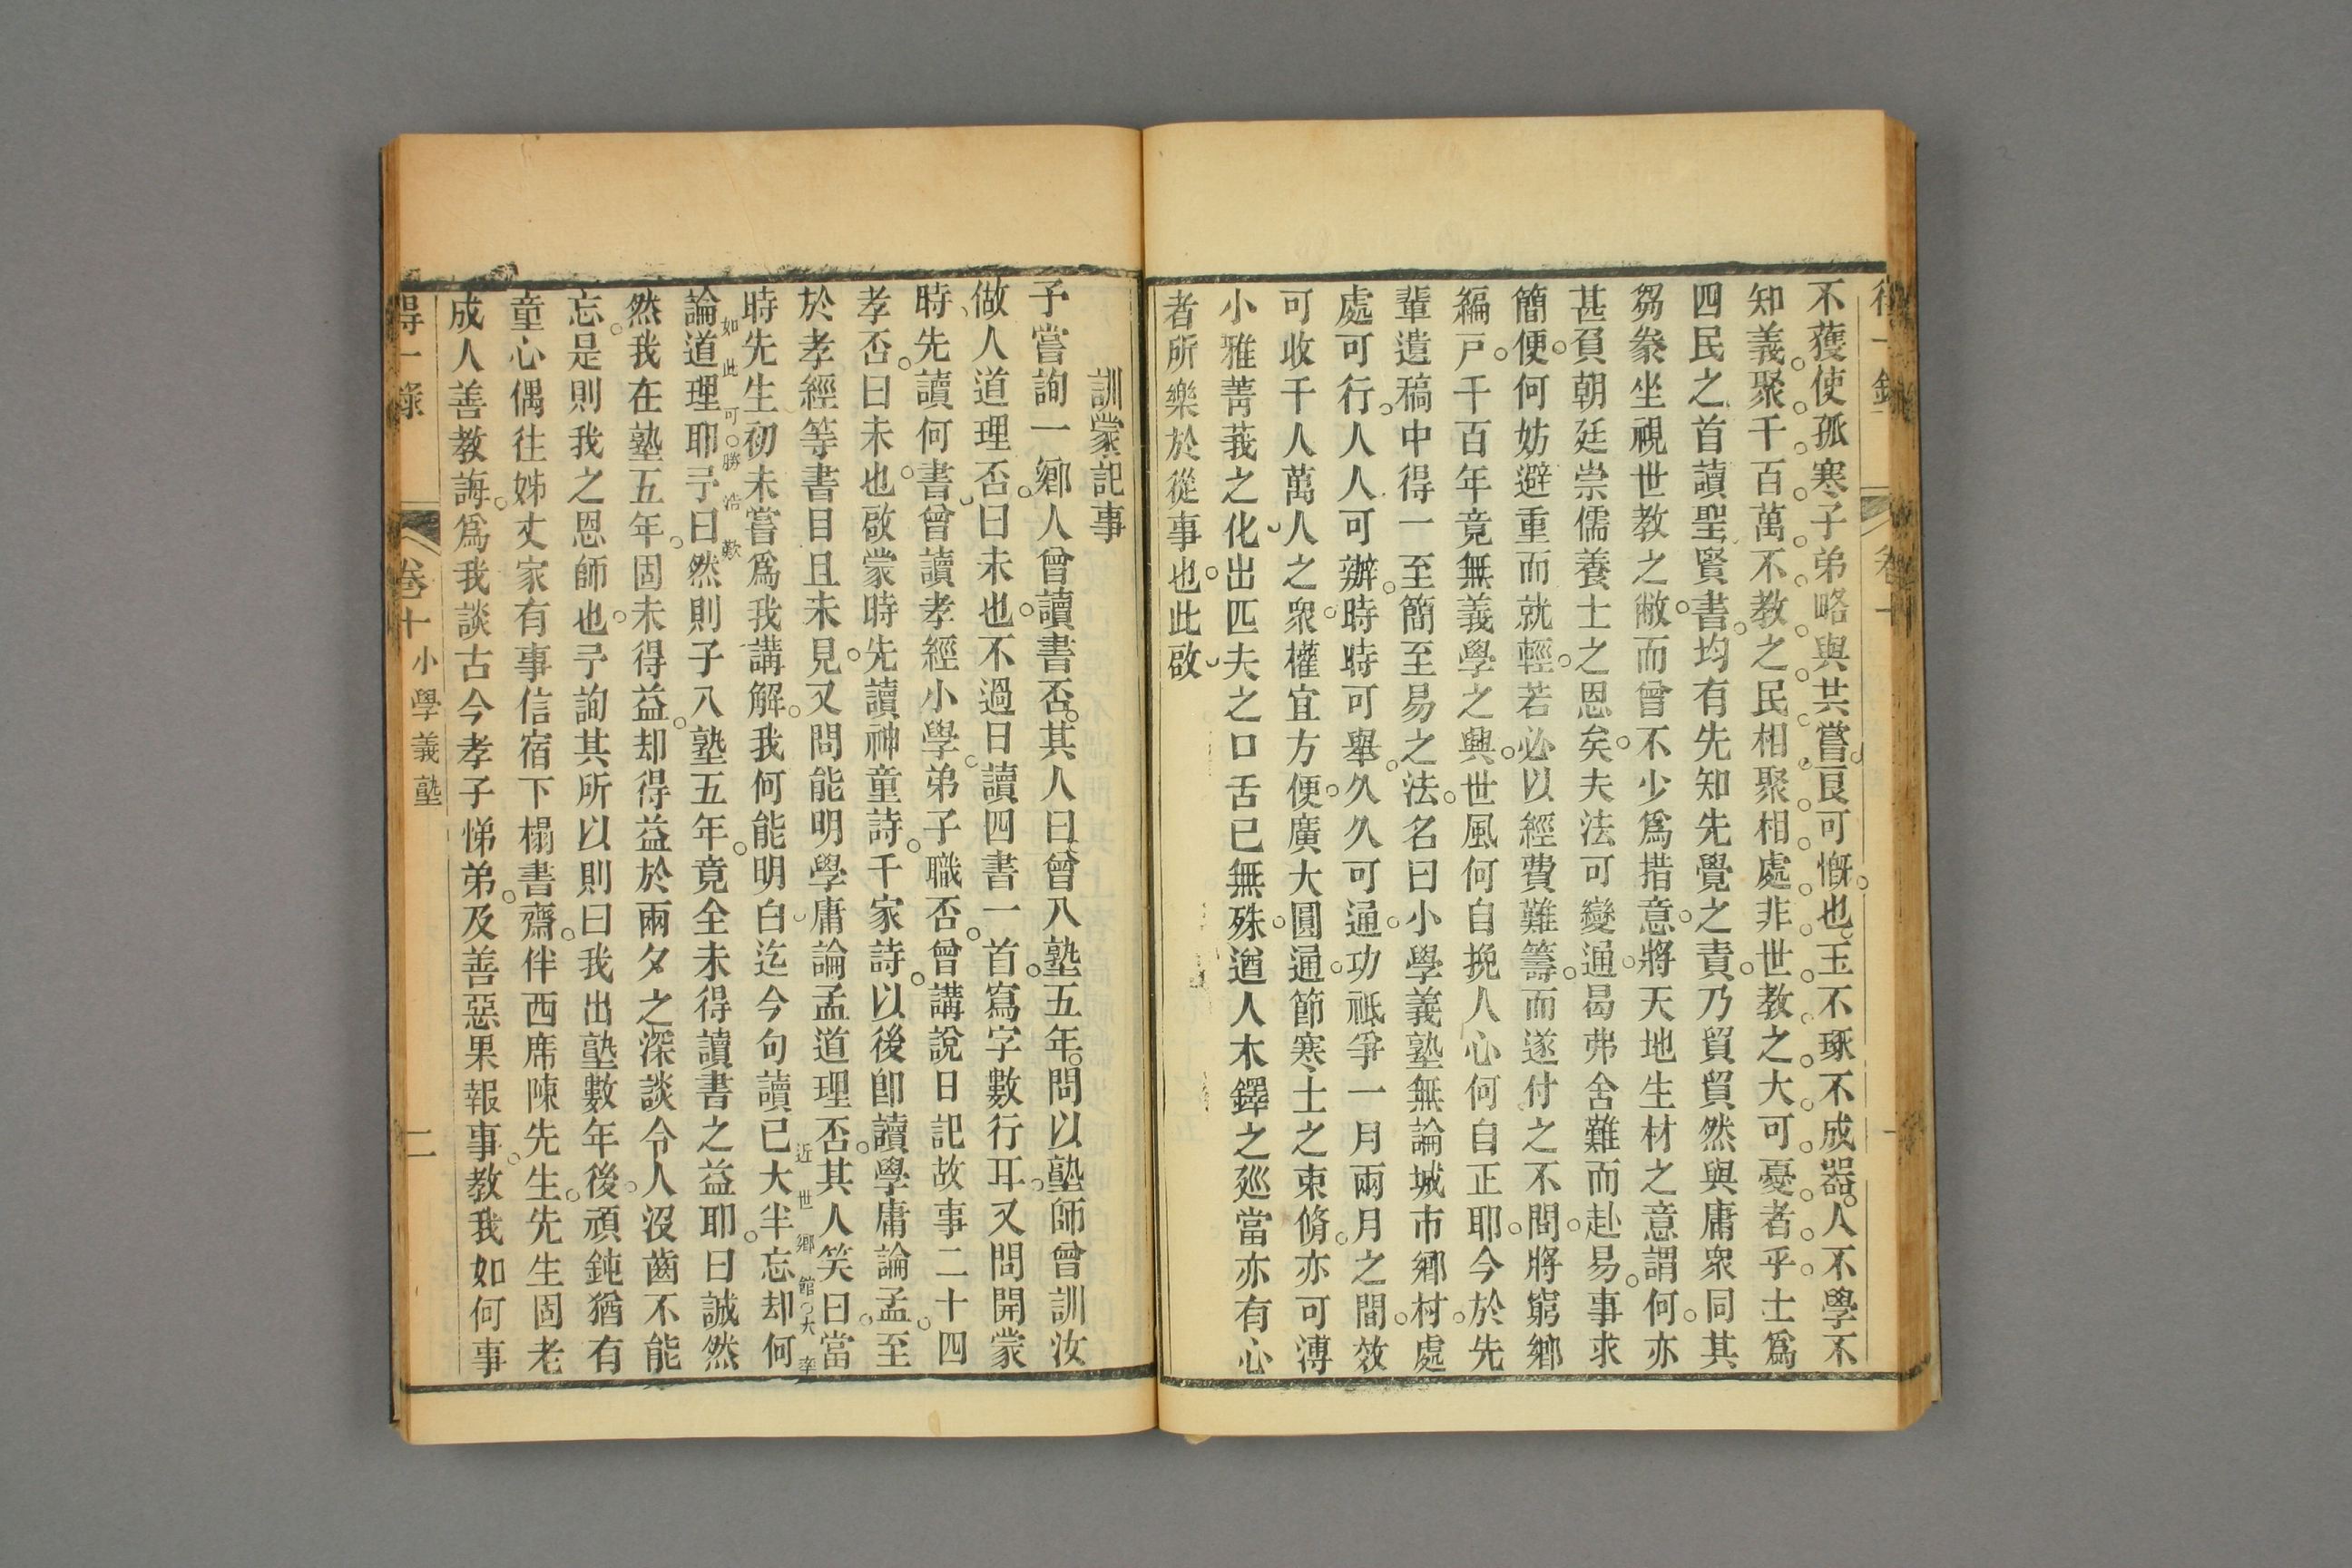 得一錄 卷十 一
不獲使孤寒子弟略與共嘗良可慨也玉不琢不成器人不學不
知義聚千百萬不教之民相聚相處非世教之大可憂者乎士爲
四民之首讀聖賢書均有先知先覺之責乃貿貿然與庸衆同其
芻豢坐視世教之敝而曾不少爲措意將天地生材之意謂何亦
甚負朝廷崇儒養士之恩矣夫法可變通曷弗舍難而赴易事求
簡便何妨避重而就輕若必以經費難籌而遂付之不問將窮鄉
編戸千百年竟無義學之興世風何自挽人心何自正耶今於先
輩遺稿中得一至簡至易之法名曰小學義塾無論城市鄉村處
處可行人人可辦時時可舉久久可通功祗爭一月兩月之間效
可收千人萬人之衆權宜方便廣大圓通節寒士之束脩亦可溥
小雅菁莪之化出匹夫之口舌已無殊遒人木鐸之廵當亦有心
者所樂於從事也此啟
訓蒙記事
予嘗詢一鄉人曾讀書否其人曰曾入塾五年問以塾師曾訓汝
做人道理否曰未也不過日讀四書一首寫字數行耳又問開蒙
時先讀何書曾讀孝經小學弟子職否曾講說日記故事二十四
孝否曰未也啟蒙時先讀神童詩千家詩以後卽讀學庸論孟至
於孝經等書目且未見又問能明學庸論孟道理否其人笑曰當
近世鄉館大率
時先生初未嘗爲我講解我何能明白迄今句讀已大半忘却何
如此可勝浩歎
論道理耶予曰然則子入塾五年竟全未得讀書之益耶曰誠然
然我在塾五年固未得益却得益於兩夕之深談令人沒齒不能
忘是則我之恩師也予詢其所以則曰我出塾數年後頑鈍猶有
童心偶往姊丈家有事信宿下榻書齋伴西席陳先生先生固老
成人善教誨爲我談古今孝子悌弟及善惡果報事教我如何事
得一錄 卷十 小學義塾 二